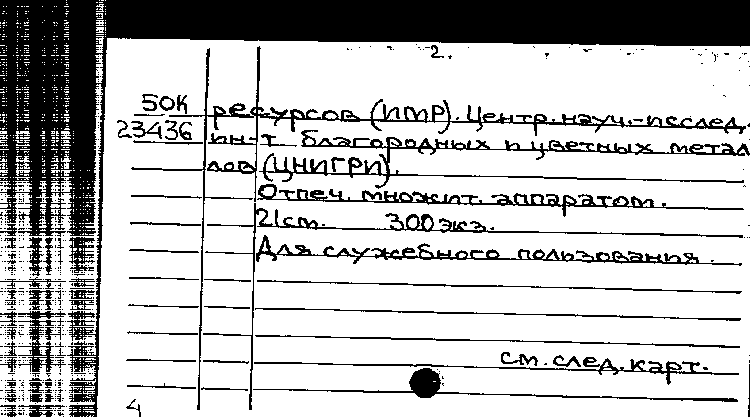 2.
50К ресурсов (ИМР). Центр. науч.-исслед.
23436 ин-т благородных и цветных метал
лов (ЦНИГРИ).
Отпеч. множит. аппаратом.
21 см. 300 экз.
Для служебного пользования.
см. след. карт.
4